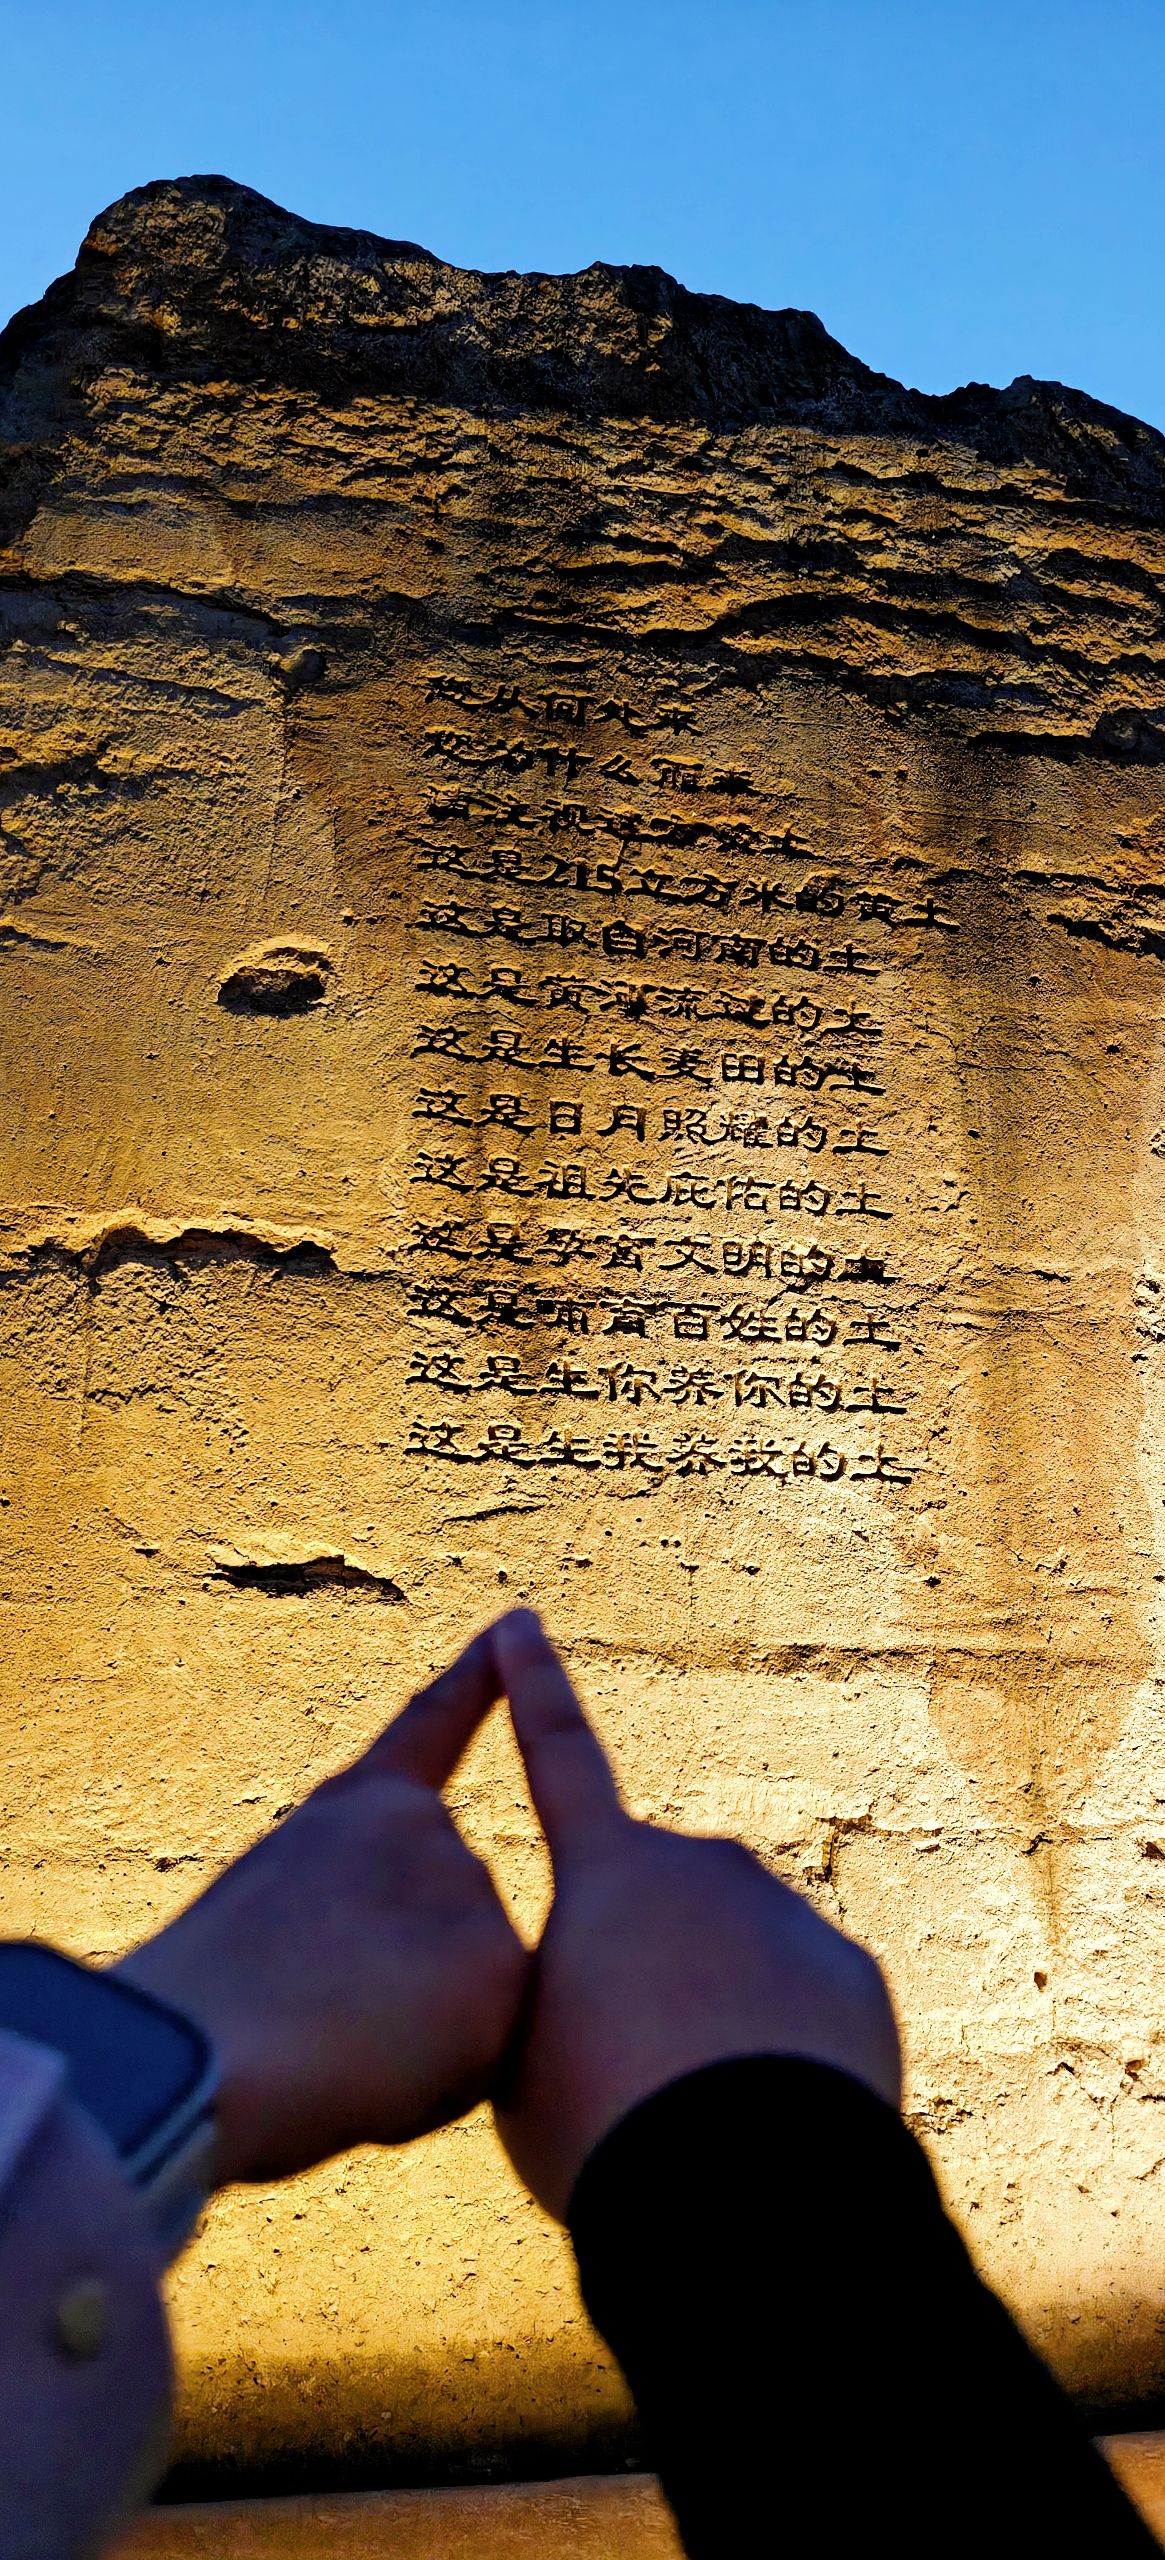 您从何处来
您为什么而来
请注视这方黄土
这是215立方米的黄土
这是取自河南的土
这是黄河流过的土
这是生长麦田的土
这是日月照耀的土
这是祖先庇佑的土
这是孕育文明的土
这是哺育百姓的土
这是生你养你的土
这是生我养我的土